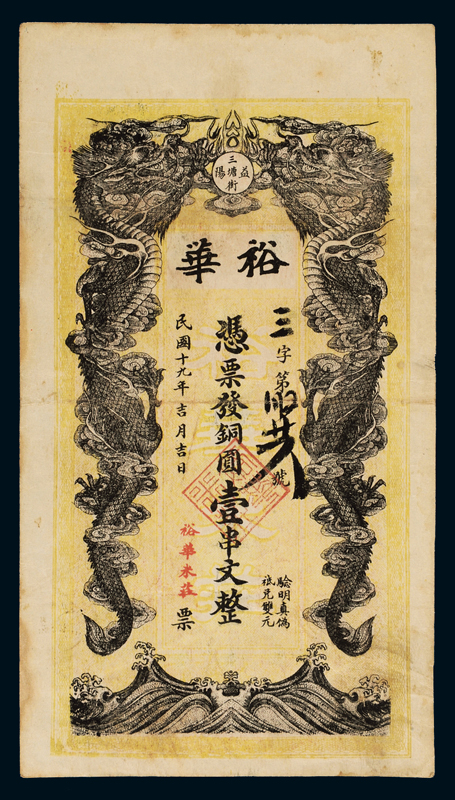 益陽
三塘街
裕華
三字第號
憑票發銅圓壹串文整
驗明真偽
祗兌雙元
民國十九年吉月吉日
裕華米莊票